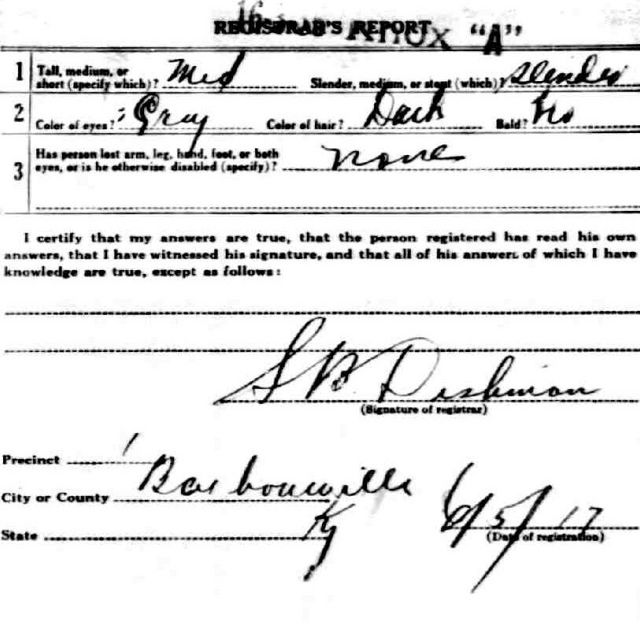 REGISTRAR'S REPORT "A"
1 Tall, medium, or short (specify which)? Med Slender, medium, or stout (which)? Slender
2 Color of eyes? Gray Color of hair? Dark Bald? No
3 Has person lost arm, leg, hand, foot, or both
eyes, or is he otherwise disabled (specify)? none
I certify that my answers are true, that the person registered has read his own
answers, that I have witnessed his signature, and that all of his answers of which I have
knowledge are true, except as follows:
S B Dishman
(Signature of registrar)
Precinct 1
City or County Barbourville
State Ky 6/5/17
(Date of registration)